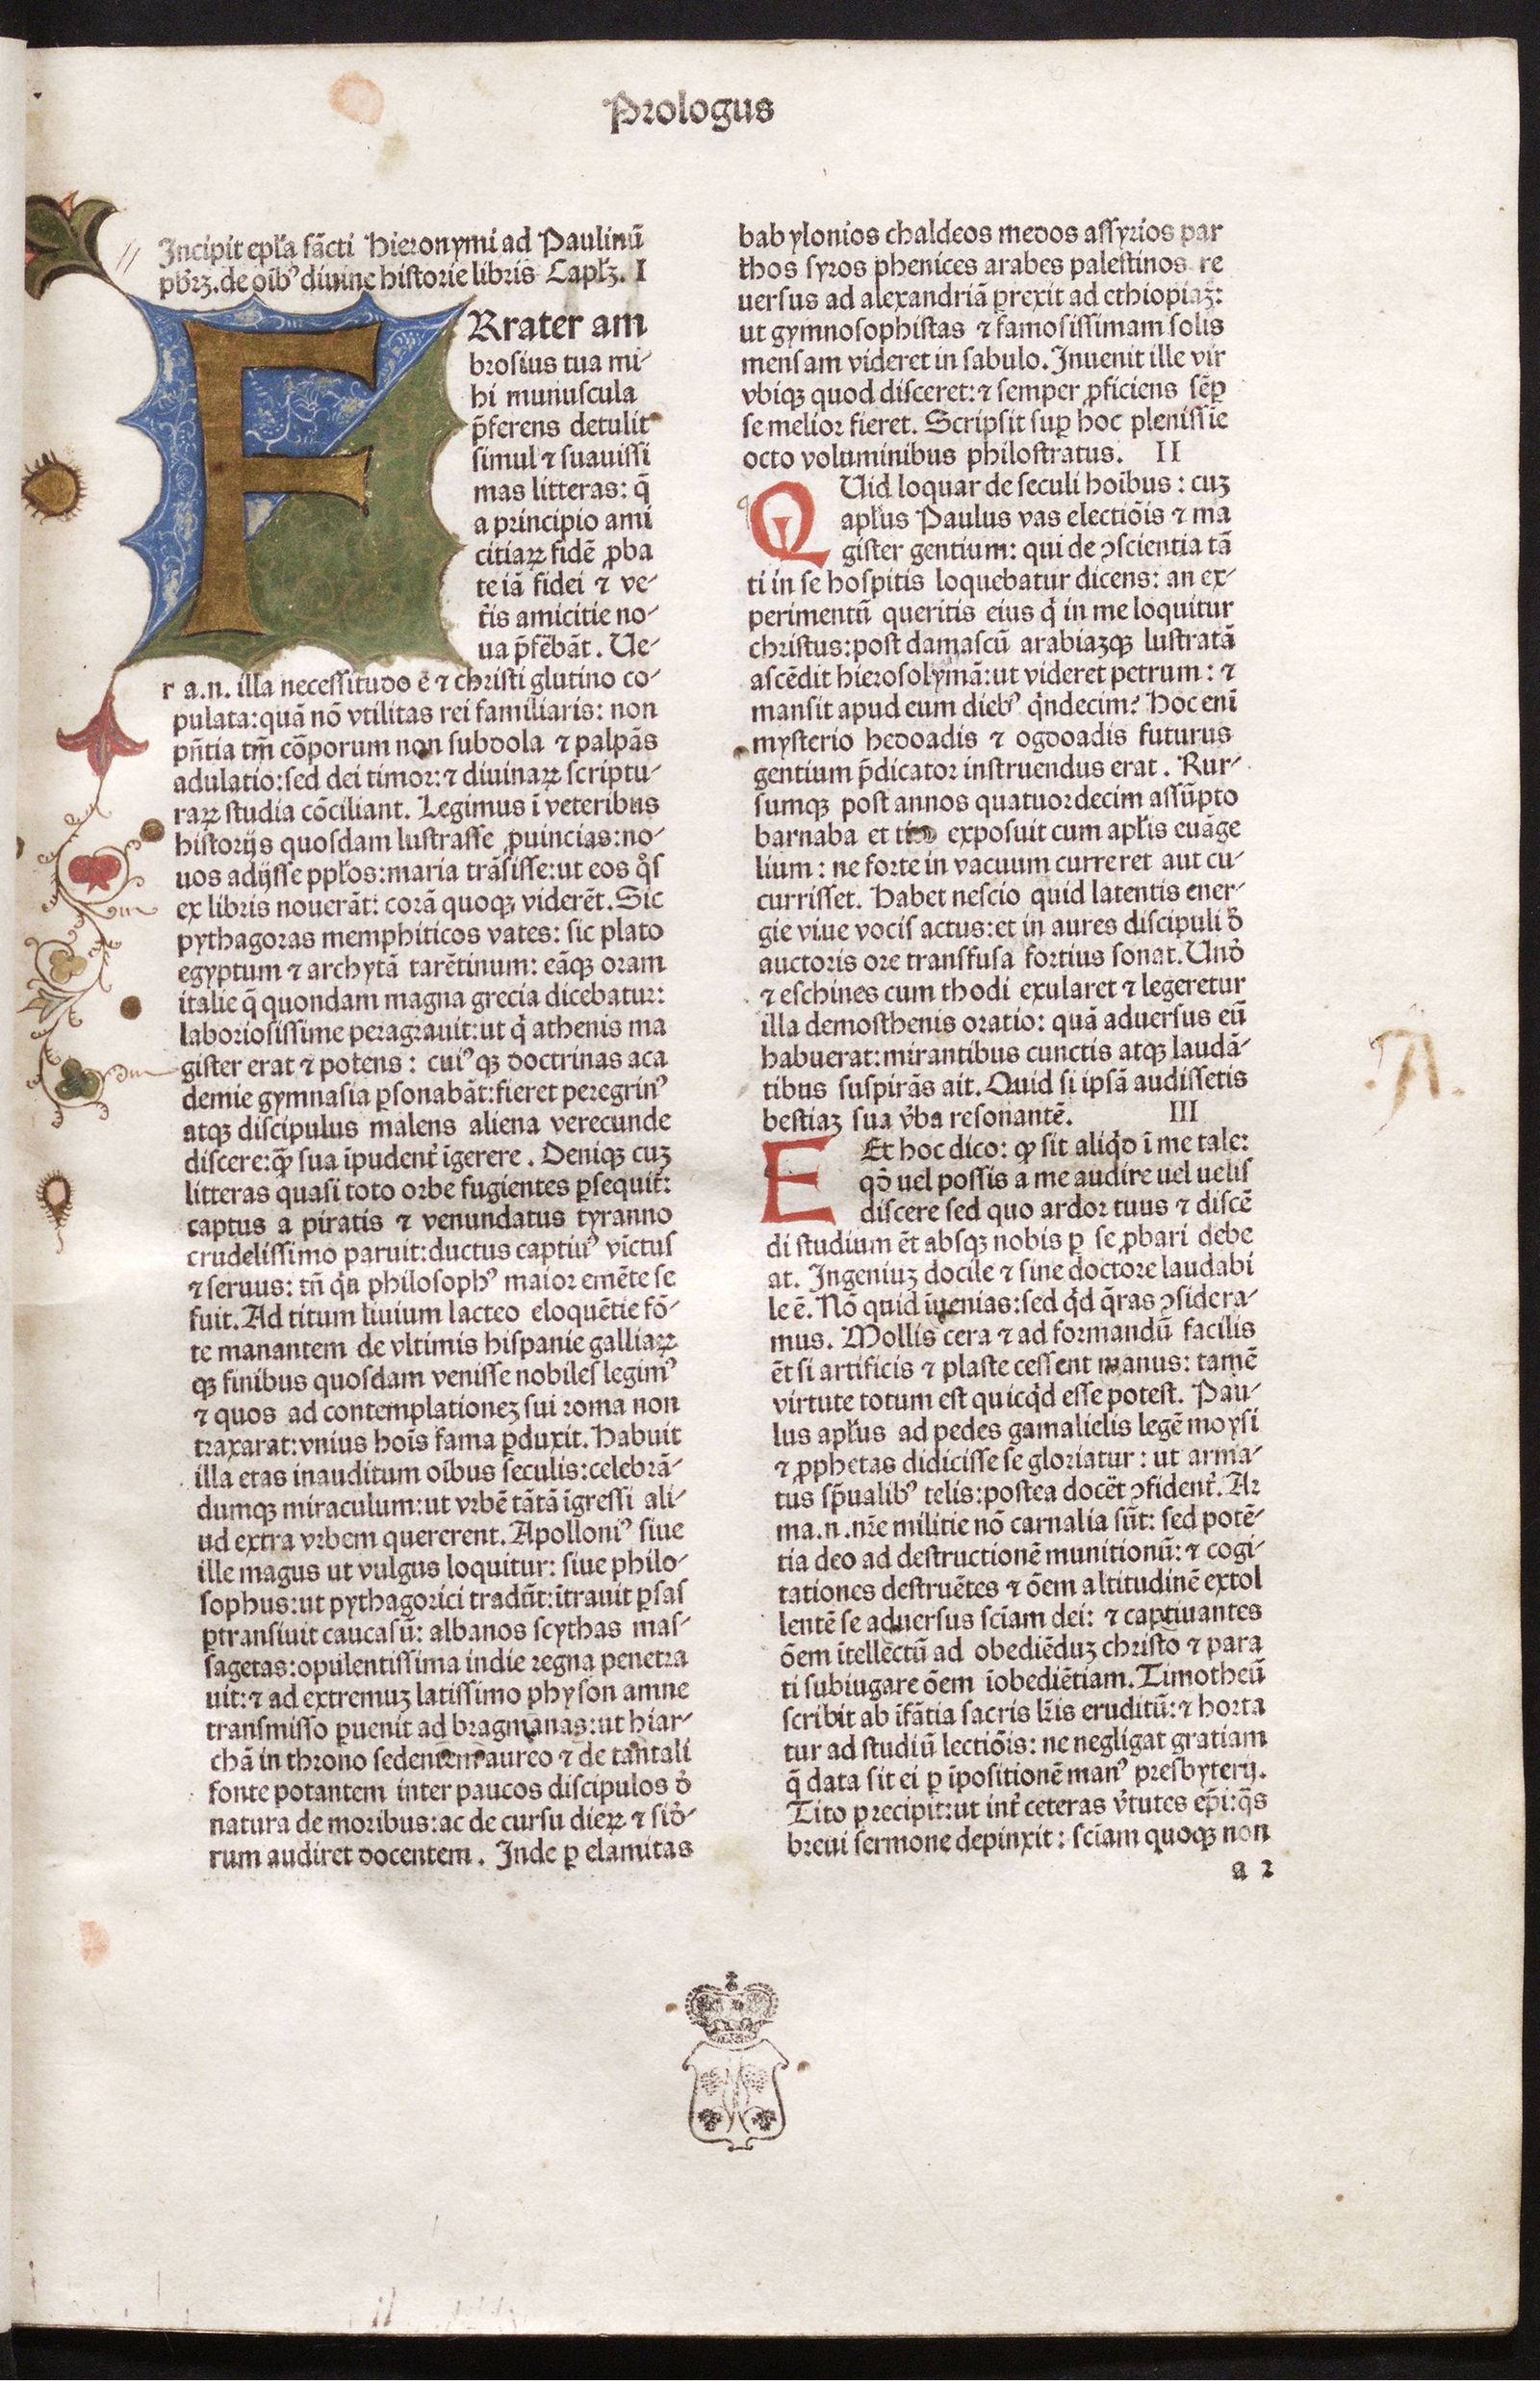 Prologus
Incipit epl̄a sācti Hieronymi ad Paulinū
pb̄rꝫ. de oīb⁹ diuine historie libris Capl̄ꝫ. I
FRrater am
brosius tua mi-
hi munuscula
p̄ferens detulit
simul ⁊ suauissi
mas litteras: q̄
a principio ami
citiaꝝ fidē ꝓba
te iā fidei ⁊ ve-
t̄is amicitie no-
ua p̄fēbāt. Ue-
r a.n. illa necessitudo ē ⁊ christi glutino co-
pulata: quā nō vtilitas rei familiaris: non
pn̄tia tm̄ cōporum non subdola ⁊ palpās
adulatio: sed dei timor: ⁊ diuinaꝝ scriptu-
raꝝ studia cōciliant. Legimus ī veteribus
historijs quosdam lustrasse ꝓuincias: no-
uos adijsse ppl̄os: maria trāsisse: ut eos q̊s
ex libris nouerāt: corā quoqꝫ viderēt. Sic
pythagoras memphiticos vates: sic plato
egyptum ⁊ archytā tarētinum: eāqꝫ oram
italie q̄ quondam magna grecia dicebatur:
laboriosissime peragrauit: ut q̇ athenis ma
gister erat ⁊ potens: cui⁹ qꝫ doctrinas aca
demie gymnasia ꝑsonabāt: fieret peregrin⁹
atqꝫ discipulus malens aliena verecunde
discere: ꝙ̄ sua īpudent̄ īgerere. Deniqꝫ cuꝫ
litteras quasi toto orbe fugientes ꝑsequit̄:
captus a piratis ⁊ venundatus tyranno
crudelissimo paruit: ductus captiu⁹ vīctus
⁊ seruus: tn̄ q̇a philosoph⁹ maior emēte se
fuit. Ad titum liuium lacteo eloquētie fō-
te manantem de vltimis hispanie galliaꝝ
qꝫ finibus quosdam venisse nobiles legim⁹
⁊ quos ad contemplationeꝫ sui roma non
traxarat: vnius hoīs fama ꝑduxit. Habuit
illa etas inauditum oībus seculis: celebrā-
dumqꝫ miraculum: ut vrbē tātā īgressi ali-
ud extra vrbem quererent. Apolloni⁹ siue
ille magus ut vulgus loquitur: siue philo-
sophus: ut pythagorici tradūt: ītrauit ꝑsas
ꝑtransiuit caucasū: albanos scythas mas-
sagetas: opulentissima indie regna penetra
uit: ⁊ ad extremuꝫ latissimo physon amne
transmisso ꝑuenit ad bragmānas: ut hiar-
chā in throno sedentem aureo ⁊ de tantali
fonte potantem inter paucos discipulos đ
natura de moribus: ac de cursu dieꝝ ⁊ siđ-
rum audiret docentem. Inde ꝑ elamitas
babylonios chaldeos medos assyrios par
thos syros phenices arabes palestinos re
uersus ad alexandriā ꝑrexit ad ethiopiaꝫ:
ut gymnosophistas ⁊ famosissimam solis
mensam videret in sabulo. Inuenit ille vir
vbiqꝫ quod disceret: ⁊ semper ꝓficiens sēꝑ
se melior fieret. Scripsit suꝑ hoc plenissīe
octo voluminibus philostratus. II
QUid loquar de seculi hoībus: cuꝫ
apl̄us Paulus vas electiōis ⁊ ma
gister gentium: qui de ꝯscientia tā
ti in se hospitis loquebatur dicens: an ex-
perimentū queritis eius q̇ in me loquitur
christus: post damascū arabiaꝫqꝫ lustratā
ascēdit hierosolymā: ut videret petrum: ⁊
mansit apud eum dieb⁹ q̇ndecim? Hoc enī
mysterio hedoadis ⁊ ogdoadis futurus
gentium p̄dicator instruendus erat. Rur-
sumqꝫ post annos quatuordecim assūpto
barnaba et tito exposuit cum apl̄is euāge
lium: ne forte in vacuum curreret aut cu-
currisset. Habet nescio quid latentis ener-
gie viue vocis actus: et in aures discipuli đ
auctoris ore transfusa fortius sonat. Unđ
⁊ eschines cum rhodi exularet ⁊ legeretur
illa demosthenis oratio: quā aduersus eū
habuerat: mirantibus cunctis atqꝫ laudā-
tibus suspirās ait. Quid si ipsā audissetis
bestiaꝫ sua v̄ba resonantē. III
EEt hoc dico: ꝙ sit aliq̇d ī me tale:
qđ uel possis a me audire uel uelis
discere sed quo ardor tuus ⁊ discē
di studium ēt absqꝫ nobis ꝑ se ꝓbari debe
at. Ingeniuꝫ docile ⁊ sine doctore laudabi
le ē. Nō quid īuenias: sed q̇d q̄ras ꝯsidera-
mus. Mollis cera ⁊ ad formandū facilis
ēt si artificis ⁊ plaste cessent manus: tamē
virtute totum est quicq̇d esse potest. Pau-
lus apl̄us ad pedes gamalielis legē moysi
⁊ ꝓphetas didicisse se gloriatur: ut arma-
tus sp̄ualib⁹ telis: postea docēt ꝯfident̄. Ar
ma.n.nr̄e militie nō carnalia sūt: sed potē-
tia deo ad destructionē munitionū: ⁊ cogi-
tationes destruētes ⁊ ōem altitudinē extol
lentē se aduersus sciam dei: ⁊ captiuantes
ōem ītellectū ad obediēduꝫ christo ⁊ para
ti subiugare ōem īobediētiam. Timotheū
scribit ab īfātia sacris lr̄is eruditū: ⁊ horta
tur ad studiū lectiōis: ne negligat gratiam
q̄ data sit ei ꝑ īpositionē man⁹ presbyterij.
Tito precipit: ut int̄ ceteras v̄tutes ep̄i: q̄s
breui sermone depinxit: sciam quoqꝫ non
a 2
A.